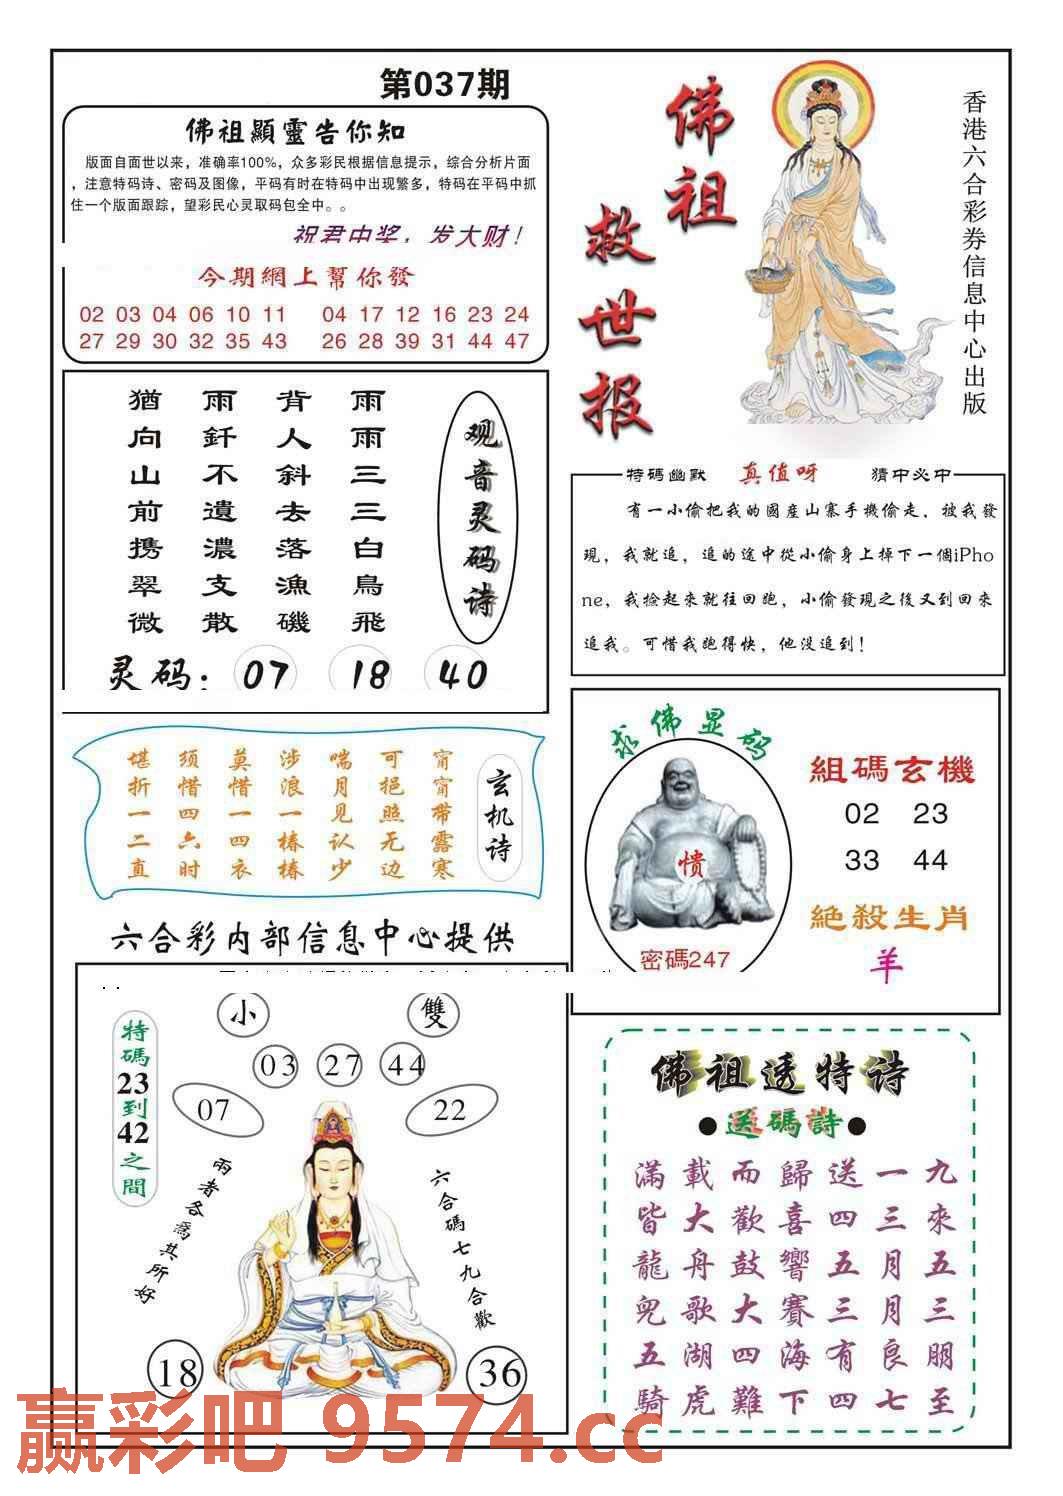 第037期
佛祖顯靈告你知
版面自面世以来，准确率100%，众多彩民根据信息提示，综合分析片面
，注意特码诗、密码及图像，平码有时在特码中出现繁多，特码在平码中抓
住一个版面跟踪，望彩民心灵取码包全中。。
祝君中奖，发大财！
今期網上幫你發
02 03 04 06 10 11 04 17 12 16 23 24
27 29 30 32 35 43 26 28 39 31 44 47
佛祖
救世报
香港六合彩券信息中心出版
观音灵码诗
雨雨三三白鳥飛
背人斜去落漁磯
雨釺不遺濃支散
猶向山前携翠微
灵码：07 18 40
特碼幽默 真值呀 猜中必中
有一小偷把我的國産山寨手機偷走，被我發
現，我就追，追的途中從小偷身上掉下一個iPho
ne，我捡起來就往回跑，小偷發現之後又到回來
追我。可惜我跑得快，他没追到！
玄机诗
甯甯带露寒
可挹照无边
喘月见认少
涉浪一椿椿
莫惜一四衣
须惜四六时
堪折一二直
求佛显码
愦
密碼247
組碼玄機
02 23
33 44
絶殺生肖
羊
六合彩内部信息中心提供
小 雙
03 27 44
07 22
特碼23到42之間
兩者各爲其所好
六合碼七九合歡
18 36
佛祖透特诗
●送碼詩●
滿載而歸送一九
皆大歡喜四三來
龍舟鼓響五月五
兜歌大賽三月三
五湖四海有良朋
騎虎難下四七至
赢彩吧 9574.cc